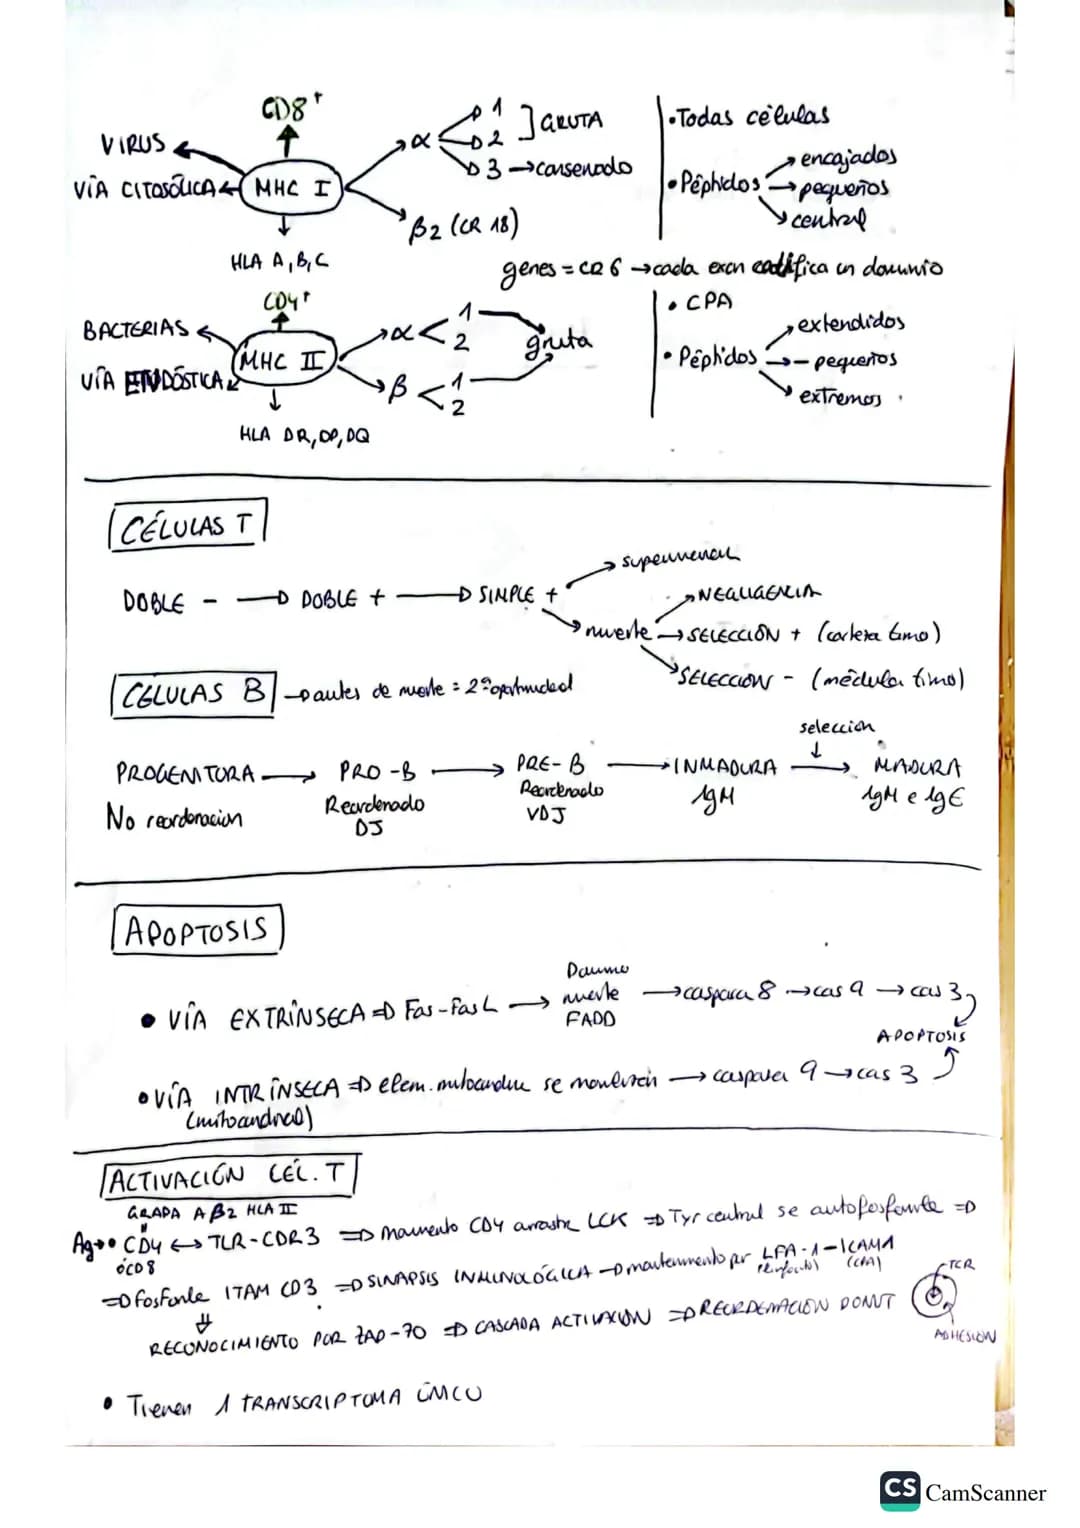 CD8+
VIRUS
VÍA CITOSÓLICA
MHC I
α 1 2 ] GRUTA
3 → conservado
β2 (CR 18)
HLA A, B, C
• Todas células
• Péptidos → encajados
→ pequeños
→ central
genes = CR 6 → cada exon codifica un dominio
CD4+
BACTERIAS
VÍA ENDÓSTICA
MHC II
α < 1 2
β < 1 2
gruta
HLA DR, DP, DQ
• CPA
• Péptidos → extendidos
→ - pequeños
→ extremos
CÉLULAS T
DOBLE - → DOBLE + → SIMPLE +
→ muerte → NEGLIGENCIA
→ SELECCIÓN + (corteza timo)
→ SELECCIÓN - (médula timo)
CÉLULAS B → antes de muerte = 2ª oportunidad
PROGENITORA → PRO-B → PRE-B → INMADURA → selección → MADURA
No reordenación
Reordenado DJ
Reordenado VDJ
IgM
IgM e IgE
APOPTOSIS
• VÍA EXTRÍNSECA ⇒ Fas-FasL → muerte FADD → caspasa 8 → cas 9 → cas 3
APOPTOSIS
• VÍA INTRÍNSECA ⇒ elem. se → caspasa 9 → cas 3
(mitocondrial)
ACTIVACIÓN CÉL. T
GRADA A β2 HLA II
Ag → • CD4 ↔ TLR-CDR3 ⇒ CD4 arrastra LCK ⇒ Tyr central se autofosforila ⇒
ó CD8
⇒ fosforila ITAM CD3 ⇒ SINAPSIS INMUNOLÓGICA → mantenimiento por LFA-1 - ICAM1
(linfocito) (CPA)
RECONOCIMIENTO POR ZAP-70 ⇒ CASCADA ACTIVACIÓN ⇒ REORDENACIÓN DONUT
TCR
ADHESIÓN
• Tienen 1 TRANSCRIPTOMA ÚNICO
CS CamScanner